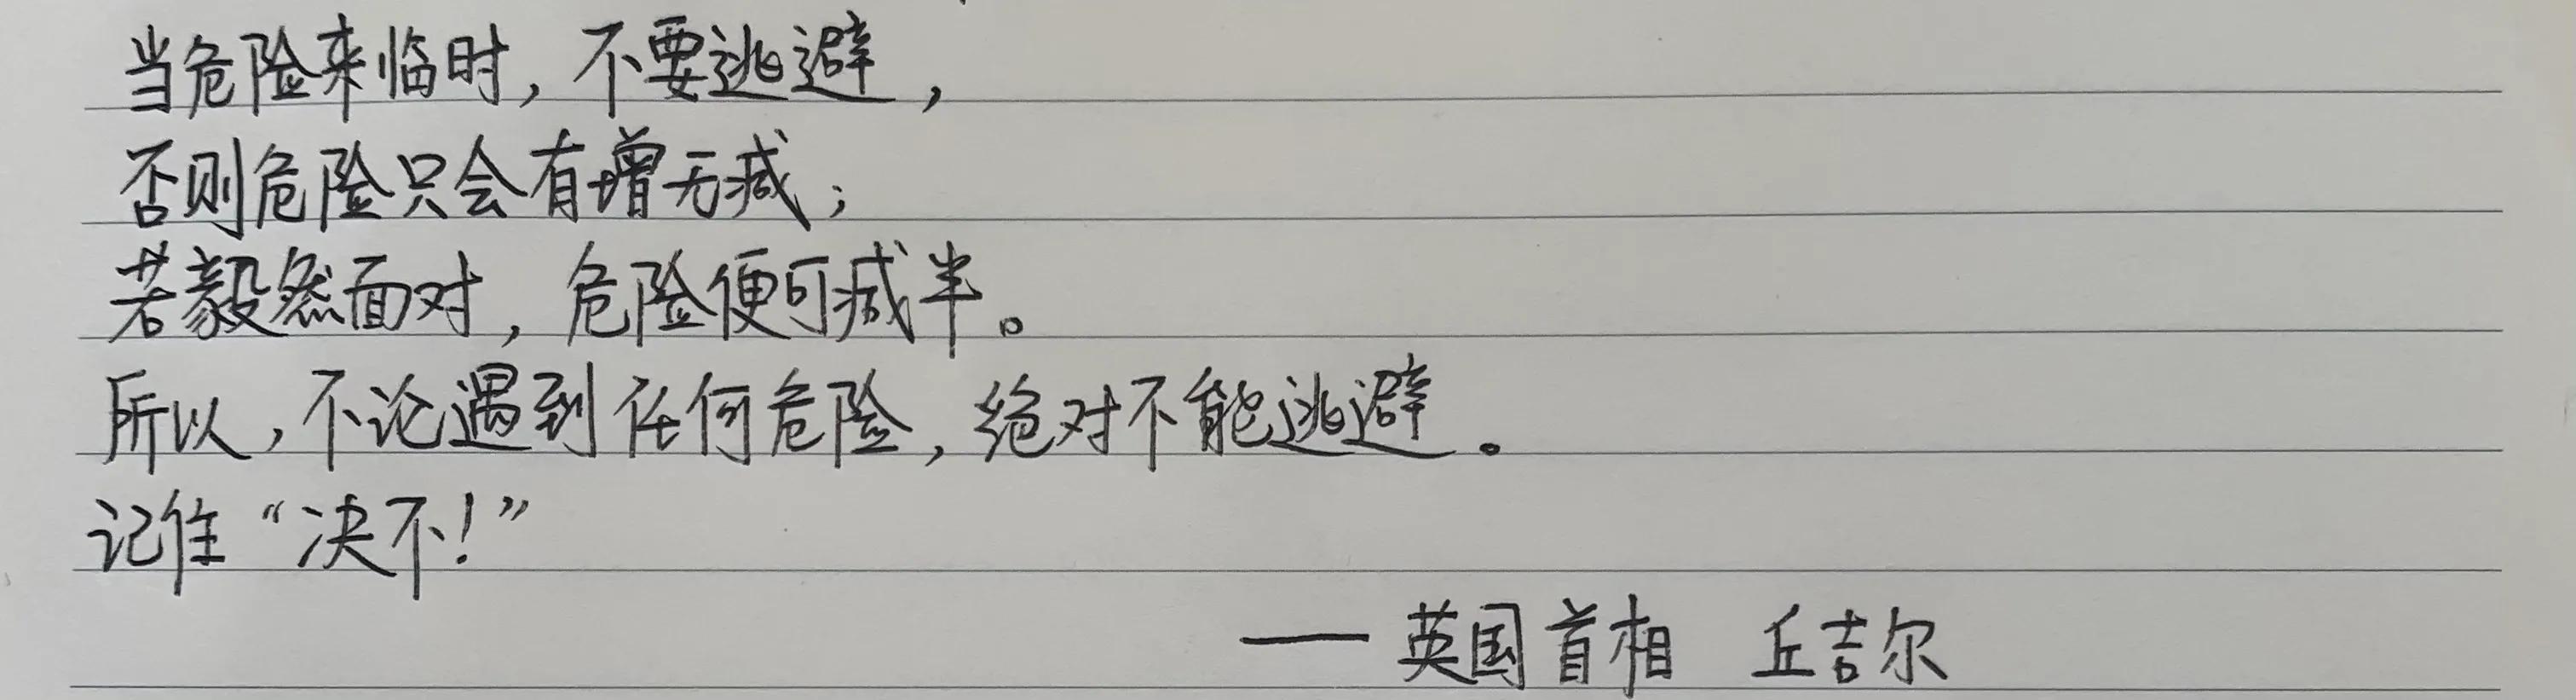 当危险来临时，不要逃避，
否则危险只会有增无减；
若毅然面对，危险便可减半。
所以，不论遇到任何危险，绝对不能逃避。
记住“决不！”
—— 英国首相 丘吉尔